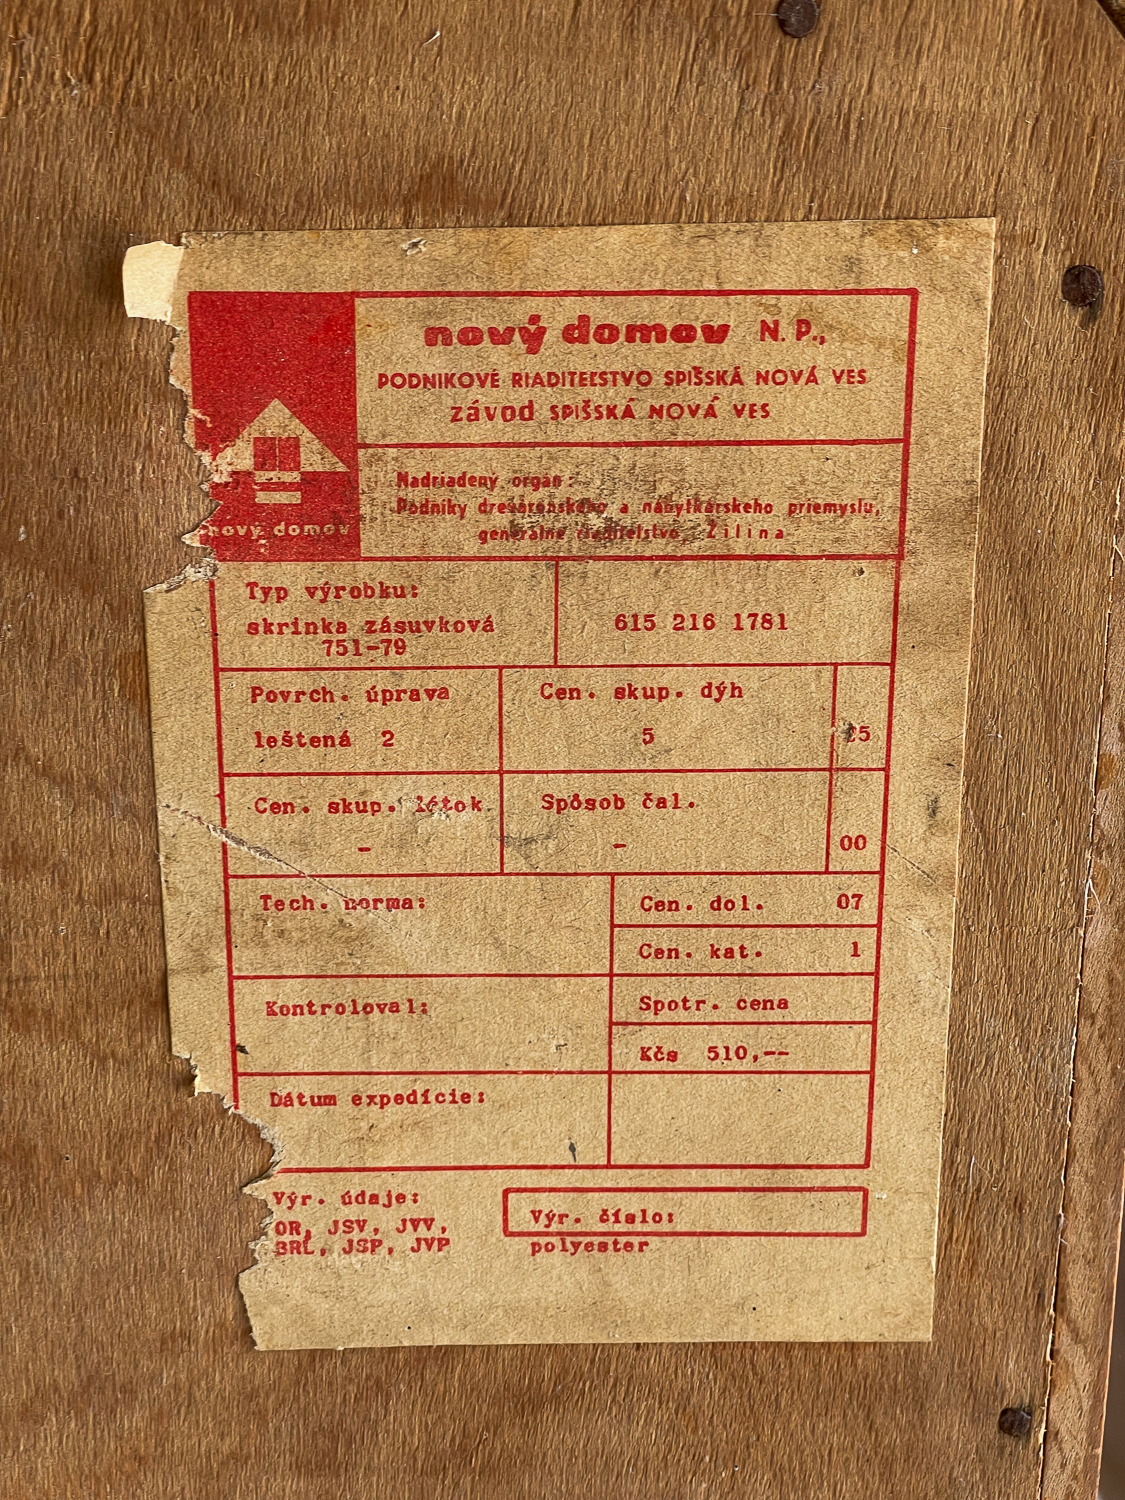 nový domov N. P.,
PODNIKOVÉ RIADITEĽSTVO SPIŠSKÁ NOVÁ VES
závod SPIŠSKÁ NOVÁ VES
nový domov
Nadriadený orgán:
Podniky drevárenského a nábytkárskeho priemyslu,
generálne riaditeľstvo, Žilina
Typ výrobku:
skrinka zásuvková
751-79
615 216 1781
Povrch. úprava
leštená 2
Cen. skup. dýh
5
25
Cen. skup. látok
-
Spôsob čal.
-
00
Tech. norma:
Cen. dol. 07
Cen. kat. 1
Kontroloval:
Spotr. cena
Kčs 510,--
Dátum expedície:
Výr. údaje:
OR, JSV, JVV,
BRL, JSP, JVP
Výr. číslo:
polyester